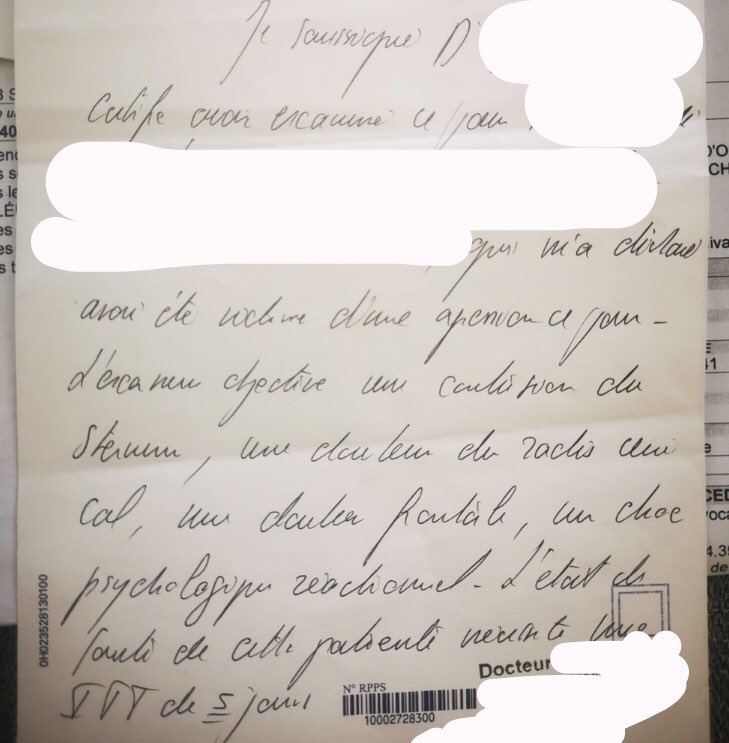 Je soussigné D
certifie avoir examiné ce jour
, qui m'a déclaré
avoir été victime d'une agression ce jour -
L'examen objective une contusion du
Sternum, une douleur du rachis cervi
cal, une douleur frontale, un choc
psychologique réactionnel - L'état de
santé de cette patiente nécessite une
ITT de 5 jours
Docteur
N° RPPS
10002728300
0H023528130100